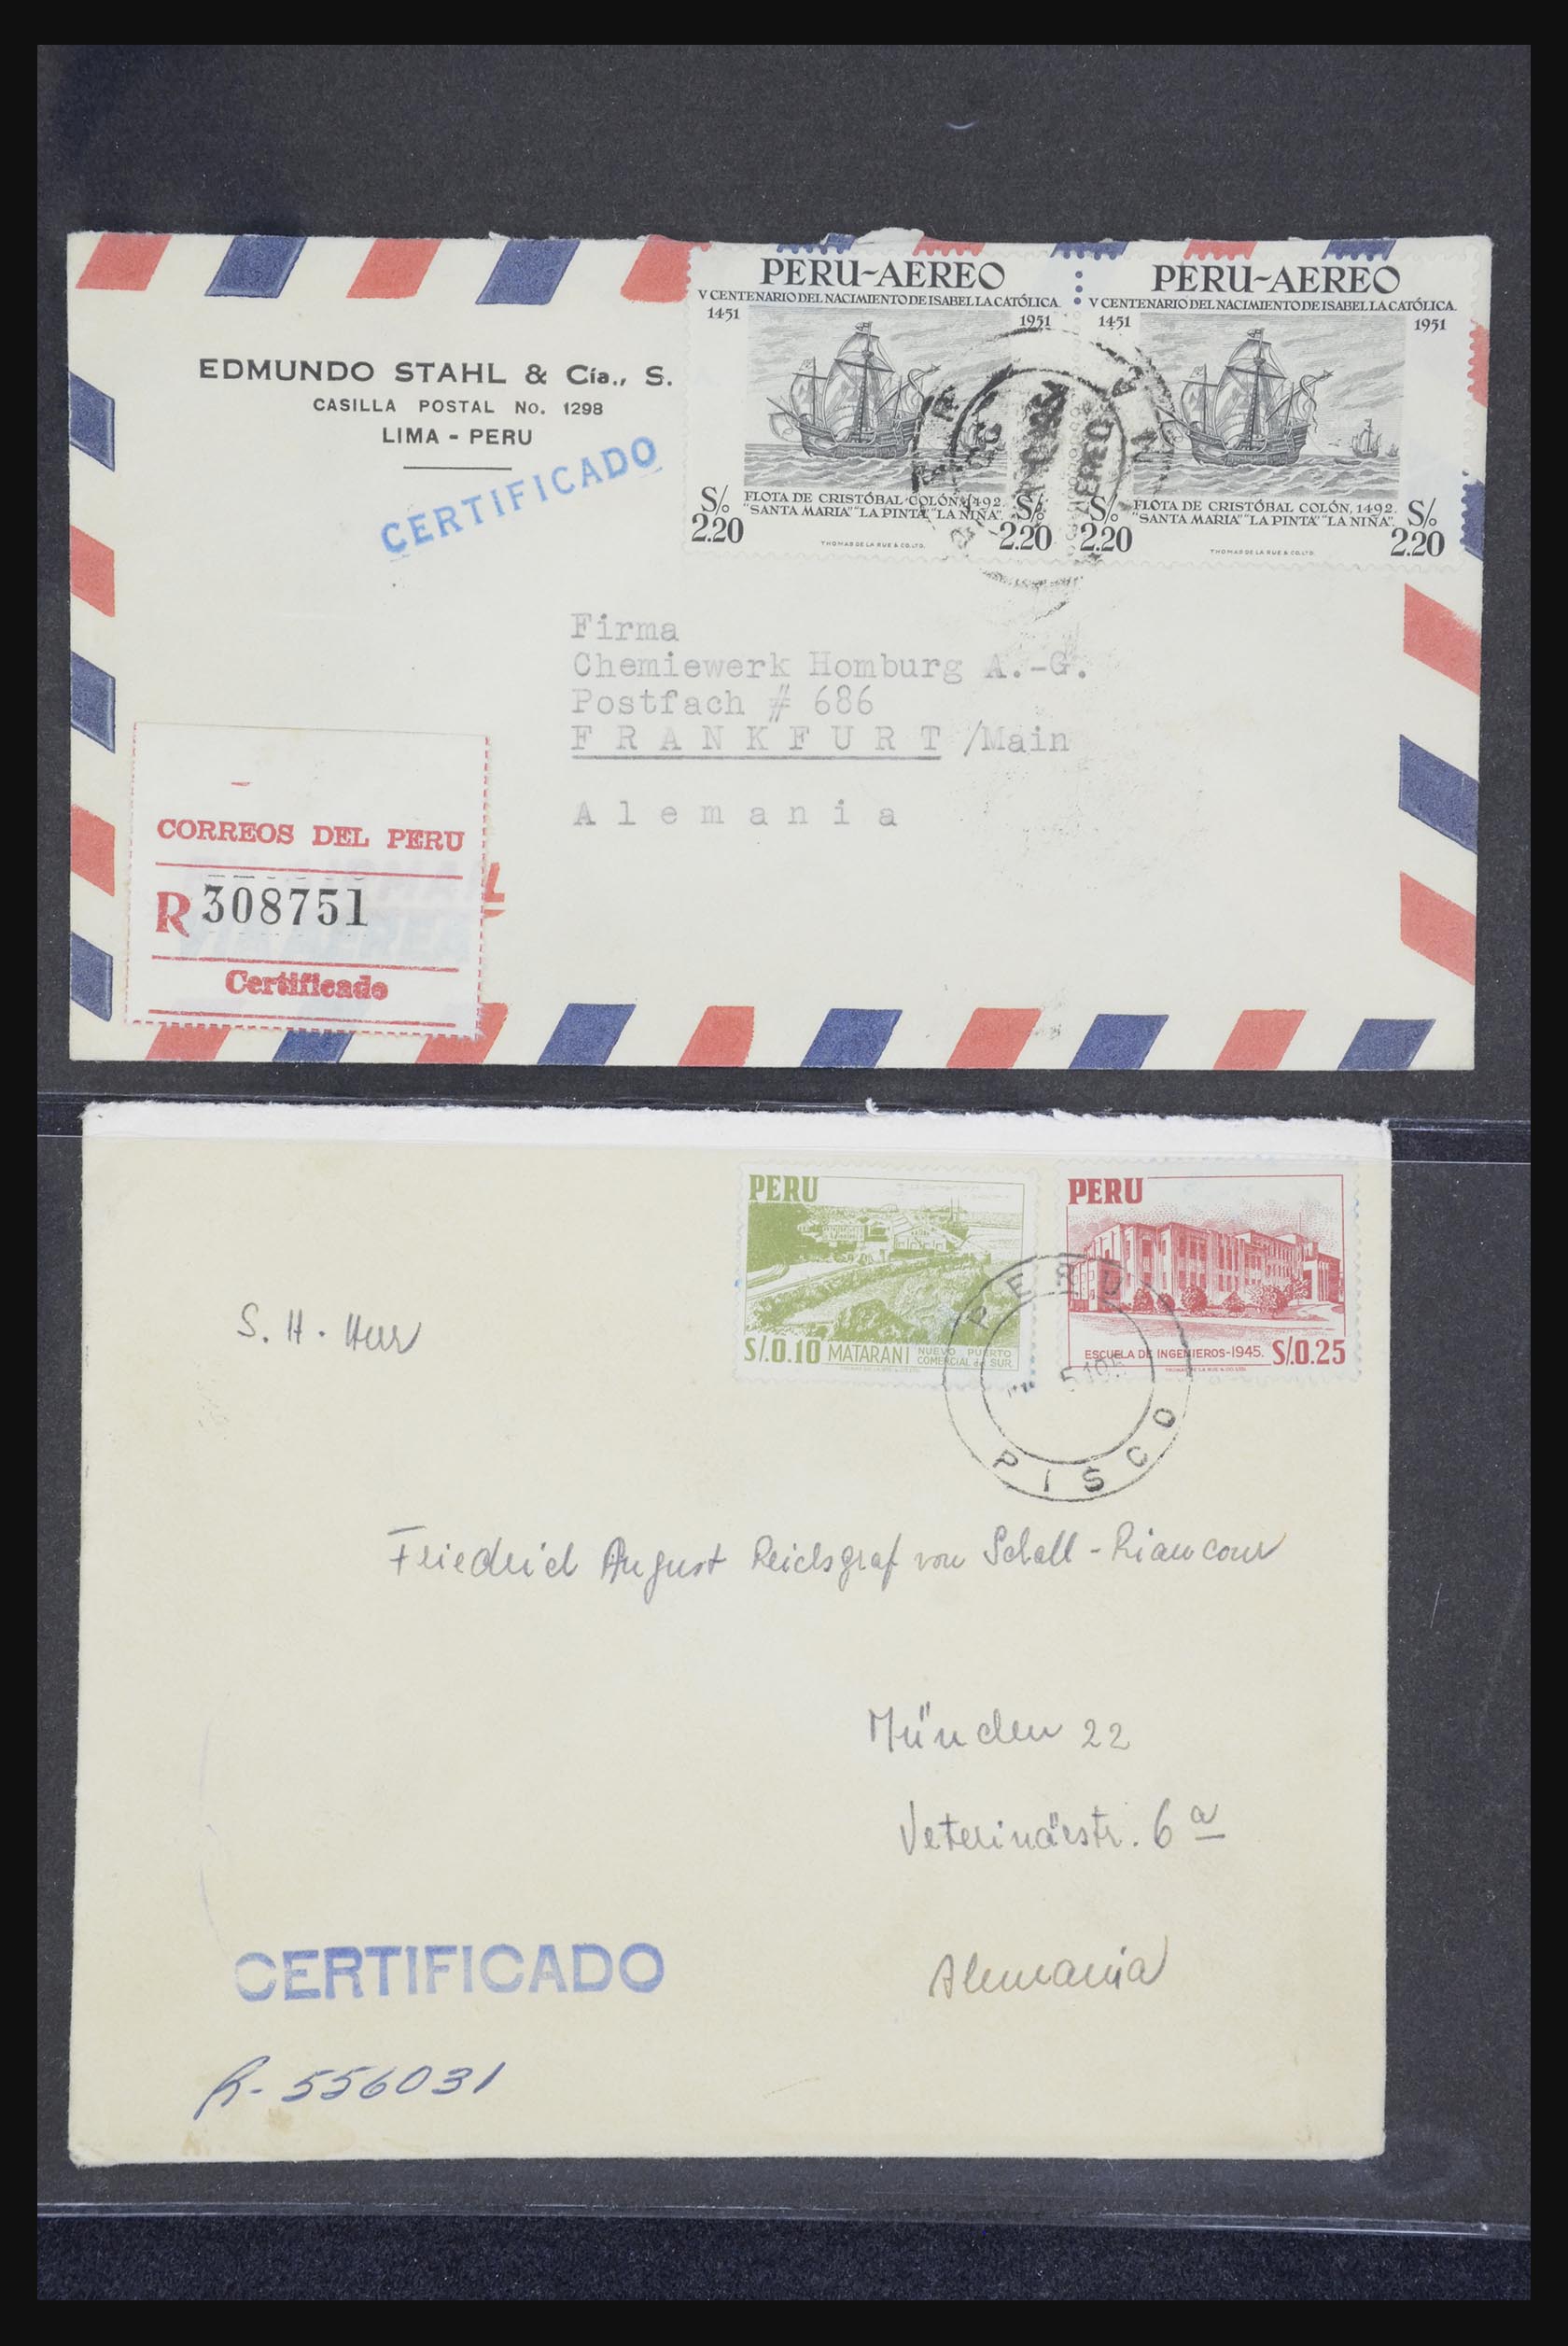 EDMUNDO STAHL & Cía., S.
CASILLA POSTAL No. 1298
LIMA - PERU
CERTIFICADO
PERU-AEREO
V CENTENARIO DEL NACIMIENTO DE ISABEL LA CATÓLICA.
1451 1951
FLOTA DE CRISTÓBAL COLÓN, 1492.
"SANTA MARIA" "LA PINTA" "LA NIÑA".
S/. 2.20 S/. 2.20
THOMAS DE LA RUE & CO. LTD.
PERU-AEREO
V CENTENARIO DEL NACIMIENTO DE ISABEL LA CATÓLICA.
1451 1951
FLOTA DE CRISTÓBAL COLÓN, 1492.
"SANTA MARIA" "LA PINTA" "LA NIÑA".
S/. 2.20 S/. 2.20
THOMAS DE LA RUE & CO. LTD.
Firma
Chemiewerk Homburg A.-G.
Postfach # 686
FRANKFURT /Main
Alemania
CORREOS DEL PERU
R 308751
Certificado
PERU
S/.0.10 MATARANI NUEVO PUERTO COMERCIAL del SUR
PERU
ESCUELA DE INGENIEROS-1945. S/0.25
PERU
PISCO
S. H. Hur
Friedrich August Reichsgraf von Schall-Riaucour
München 22
Veterinärstr. 6 a
Alemania
CERTIFICADO
R- 556031